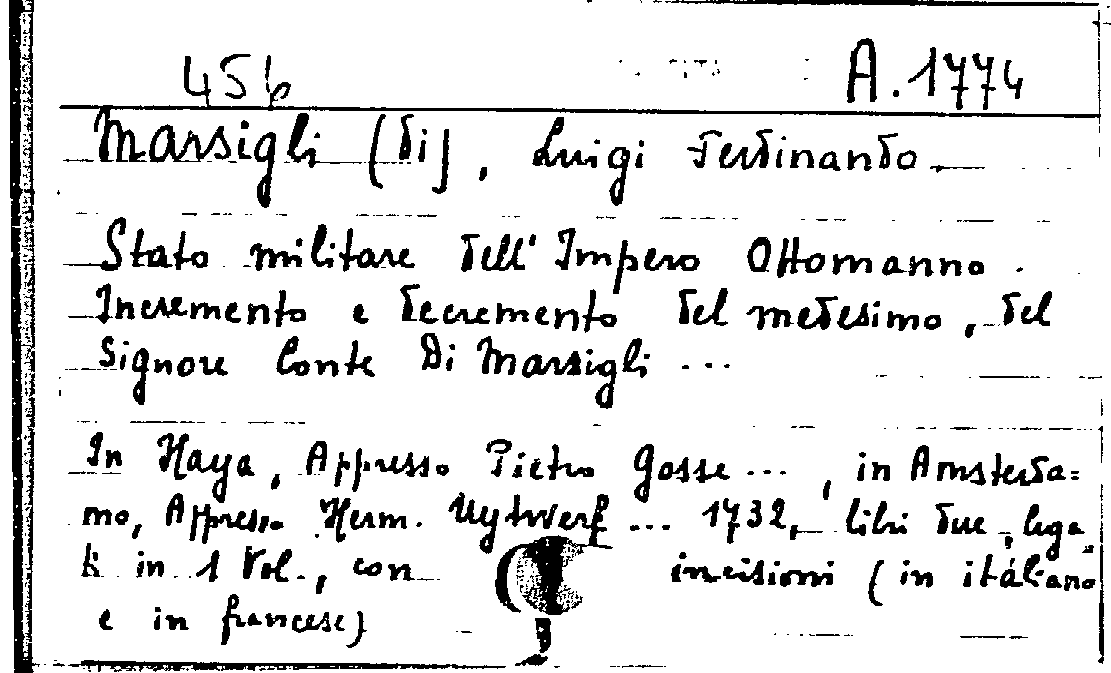 456 A.1774
Marsigli (di), Luigi Ferdinando.
Stato militare dell'Impero Ottomanno.
Incremento e decremento del medesimo, del
Signore Conte Di Marsigli ...
In Haya, Appresso Pietro Gosse ... , in Amsterda=
mo, Appresso Herm. Uytwerf ... 1732, libri due, lega
ti in 1 Vol., con incisioni (in italiano
e in francese)